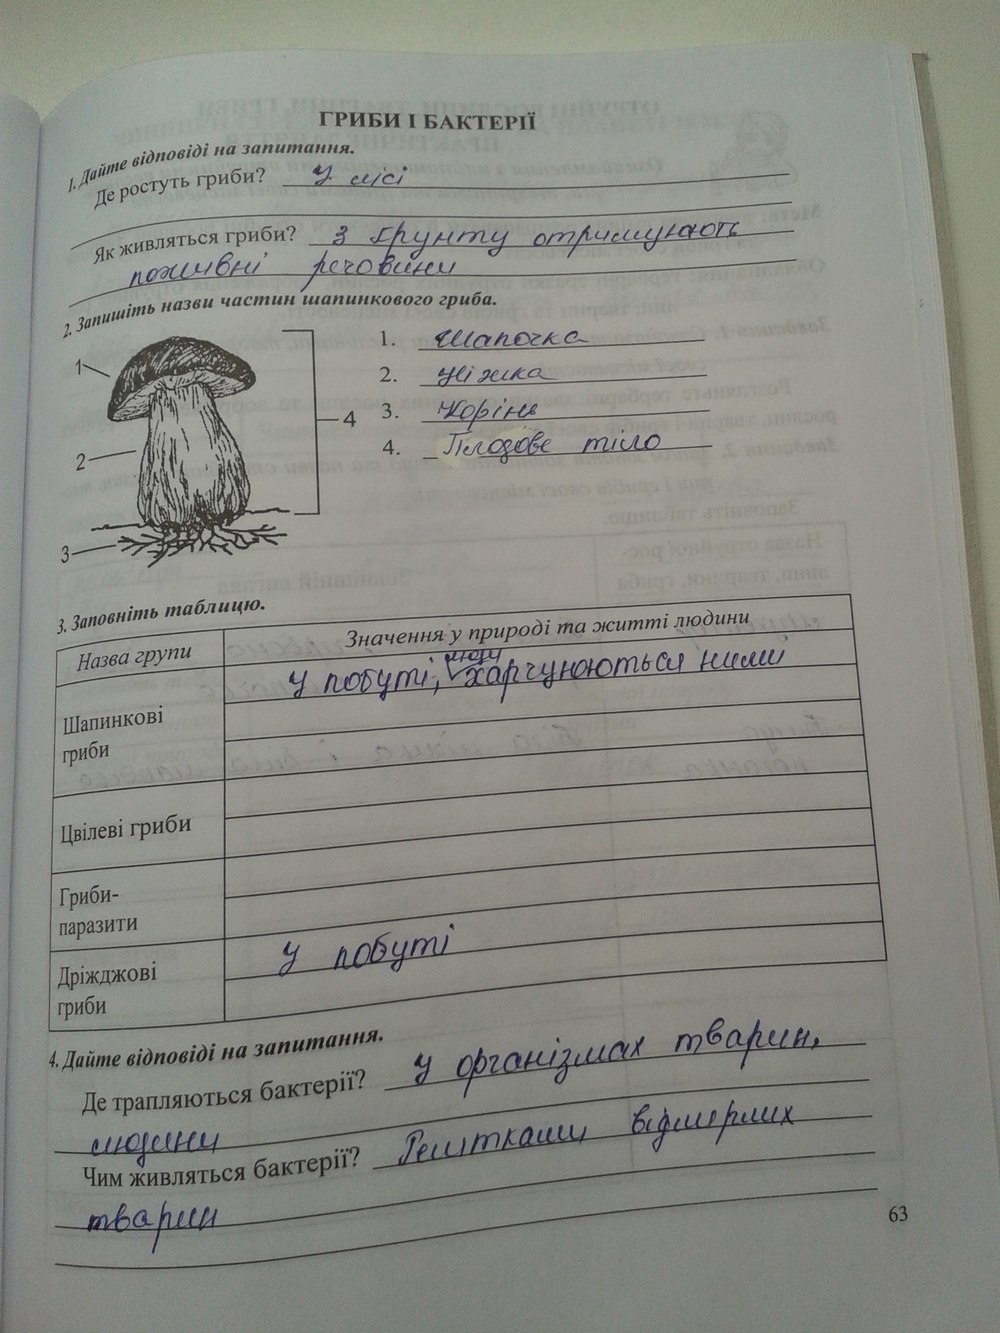 ГРИБИ І БАКТЕРІЇ
1. Дайте відповіді на запитання.
Де ростуть гриби? У лісі
Як живляться гриби? З ґрунту отримують
поживні речовини
2. Запишіть назви частин шапинкового гриба.
1. Шапочка
2. Ніжка
3. Корінь
4. Плодове тіло
1
2
3
4
3. Заповніть таблицю.
Назва групи Значення у природі та житті людини
Шапинкові гриби У побуті, люди харчуюються ними
Цвілеві гриби
Гриби-
паразити
Дріжджові гриби У побуті
4. Дайте відповіді на запитання.
Де трапляються бактерії? У організмах тварин,
людини
Чим живляться бактерії? Рештками відмерлих
тварин
63